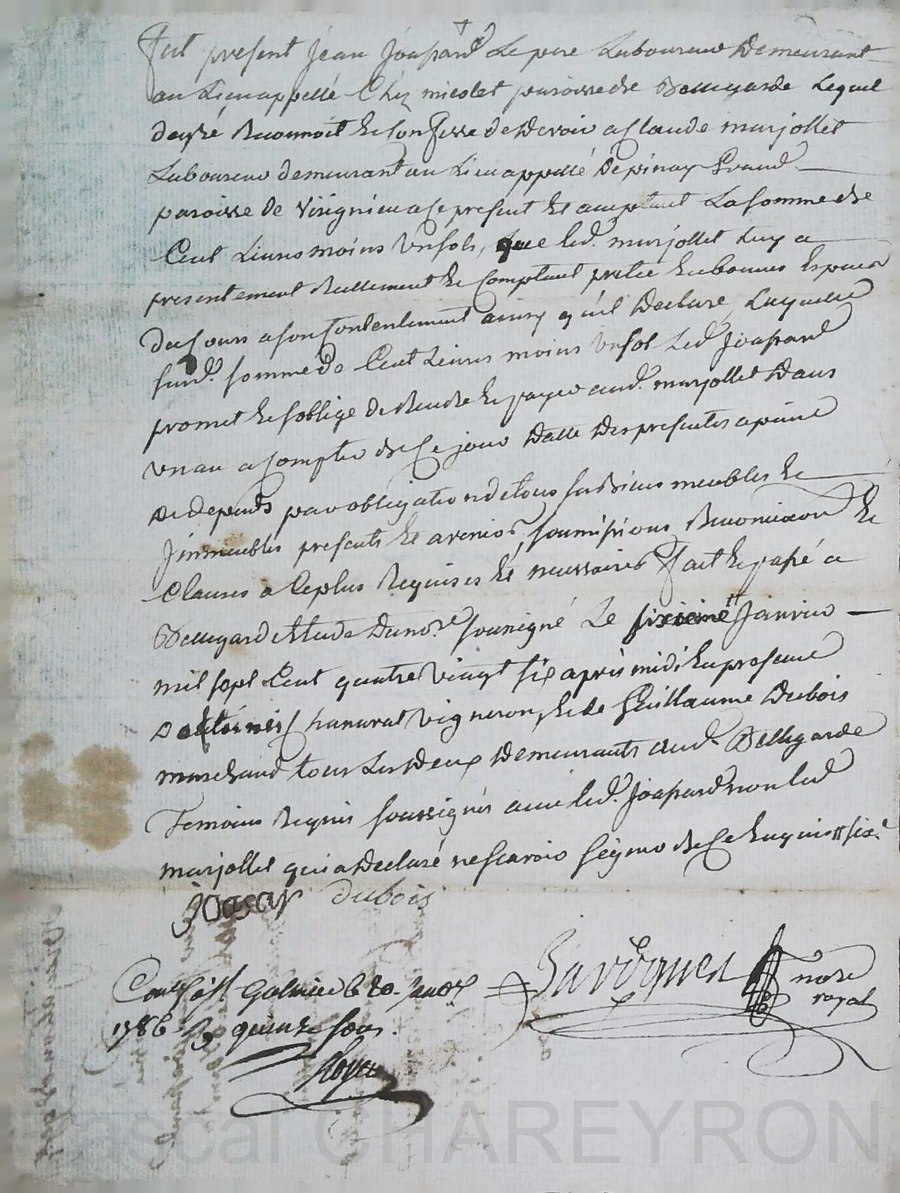 Fut présent Jean Joapard Le pere Laboureur Demeurant
au Lieu appellé Chez micolet paroisse de Bellegarde Lequel
de gré Reconnoit Et Confesse de Devoir a Claude marjollet
Laboureur demeurant au Lieu appellé Depinay Grand
paroisse de Virignieu a Ce present Et acceptant La somme de
Cent Livres moins un sols, que led. marjollet Luy a
presentement Reellement Et Comptant pretée En bonnes Especes
du Cours a son Contentement ainsy qu'il Declare, Laquelle
susd. somme de Cent Livres moins un sol Led. Joapard
promet Et s'oblige de Rendre Et payer aud. marjollet Dans
un an a Compter de Ce jour Datte Des presentes a peine
de depends par obligation de tous ses Biens meubles Et
Jmmeubles presents Et avenir, soumissions Renonciaons Et
Clauses a Ce plus Requises Et necessaires fait Et passé a
Bellegard Etude Du nore. sousigné Le sixieme Janvier
mil sept Cent quatre vingt six après midi En presence
D'antoine vigneron, Et de Guillaume Dubois
marchand tous Les Deux Demeurants aud. Bellegarde
Temoins Requis soussignés avec led. Joapard non led.
marjollet qui a Declaré ne scavoir signer de Ce Enquis // six.
joapar dubois
nore
royal
Conllé à St Galmier le 20. Janvr
1786. R quinze sous
Pascal CHAREYRON